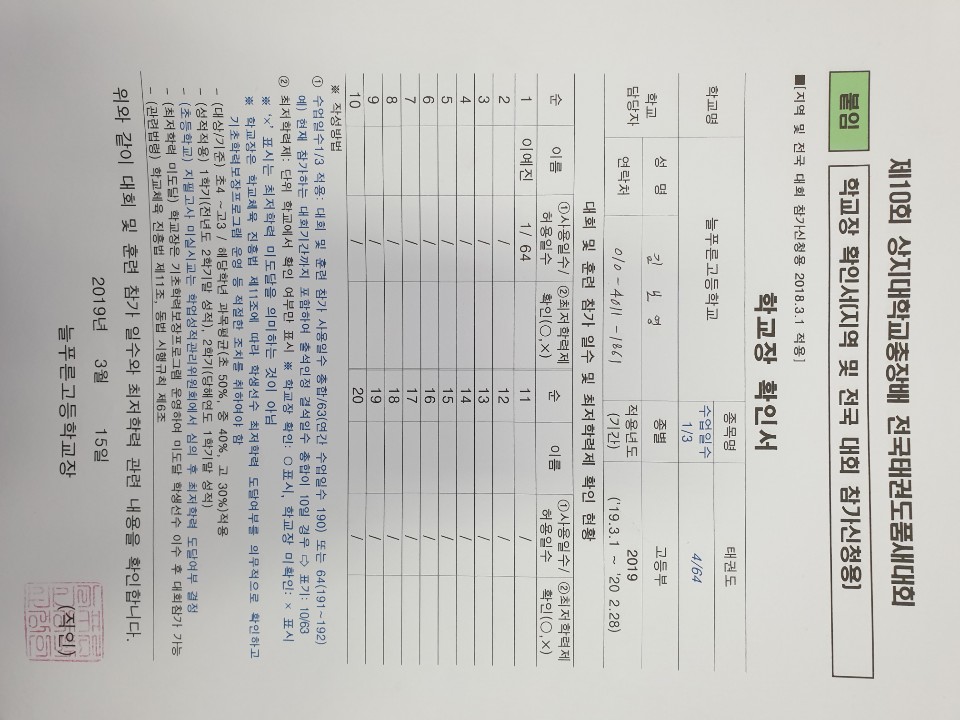 제10회 상지대학교총장배 전국태권도품새대회
붙임
학교장 확인서(지역 및 전국 대회 참가신청용)
■[지역 및 전국 대회 참가신청용 2018.3.1 적용]
학교장 확인서
학교명 늘푸른고등학교 종목명 태권도
수업일수 1/3 4/64
학교 담당자 성 명 종별 고등부
연락처 010-4011-1861 적용년도 (기간) 2019 ('19.3.1 ~ '20 2.28)
대회 및 훈련 참가 일수 및 최저학력제 확인 현황
순 이름 ①사용일수/허용일수 ②최저학력제 확인(○,×) 순 이름 ①사용일수/허용일수 ②최저학력제 확인(○,×)
1 이예진 1/ 64 11 /
2 / 12 /
3 / 13 /
4 / 14 /
5 / 15 /
6 / 16 /
7 / 17 /
8 / 18 /
9 / 19 /
10 / 20 /
※ 작성방법
① 수업일수1/3 적용: 대회 및 훈련 참가 사용일수 총합/63(연간 수업일수 190) 또는 64(191~192)
예) 현재 참가하는 대회기간까지 포함하여 출석인정 결석일수 총합이 10일 경우 ⇨ 표기: 10/63
② 최저학력제: 단위 학교에서 확인 여부만 표시 ※ 학교장 확인: ○표시, 학교장 미확인: × 표시
※ '×' 표시는 최저학력 미도달을 의미하는 것이 아님
※ 학교장은 학교체육 진흥법 제11조에 따라 학생선수 최저학력 도달여부를 의무적으로 확인하고
기초학력보장프로그램 운영 등 적절한 조치를 취하여야 함
- (대상/기준) 초4 ~고3 / 해당학년 과목평균(초 50%, 중 40%, 고 30%)적용
- (성적적용) 1학기(전년도 2학기말 성적), 2학기(당해연도 1학기말 성적)
- (초등학교) 지필고사 미실시교는 학업성적관리위원회에서 심의 후 최저학력 도달여부 결정
- (최저학력 미도달) 학교장은 기초학력보장프로그램 운영하여 미도달 학생선수 이수 후 대회참가 가능
- (관련법령) 학교체육 진흥법 제11조, 동법 시행규칙 제6조
위와 같이 대회 및 훈련 참가 일수와 최저학력 관련 내용을 확인합니다.
2019년 3월 15일
늘푸른고등학교장 (직인)